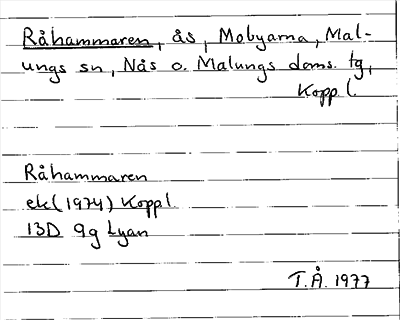 Råhammaren, ås, Mobyarna, Mal-
ungs sn, Nås o. Malungs doms. tg,
Kopp l.
Råhammaren
ek (1974) Kopp l
13D 9g Lyan
T.Å. 1977